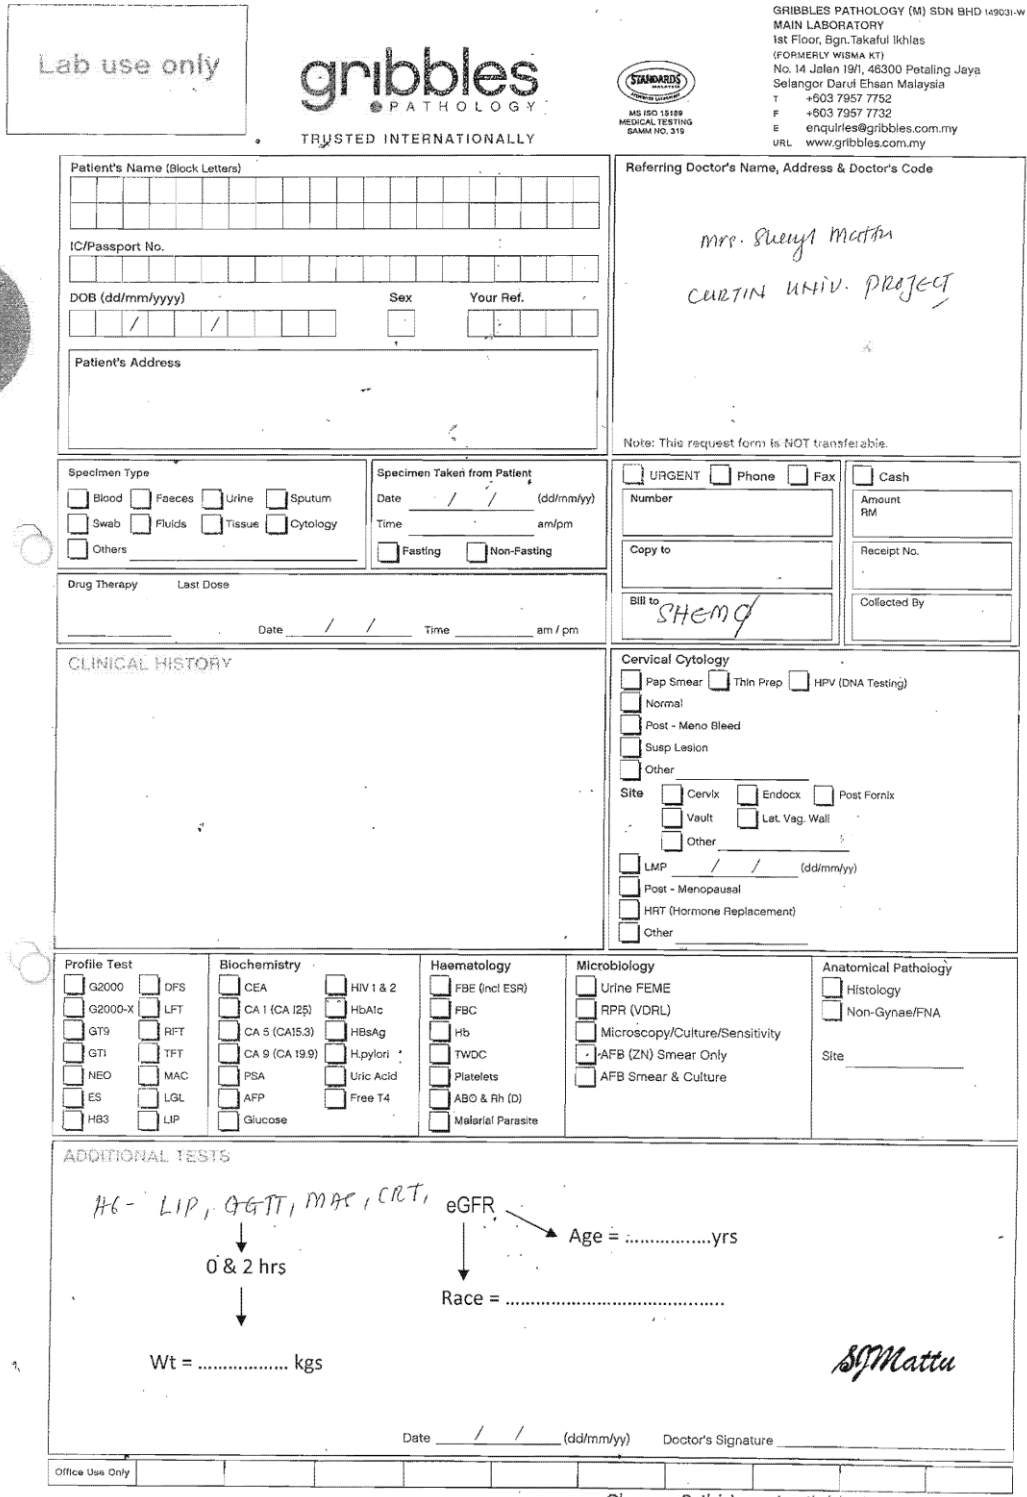 Lab use only
gribbles
PATHOLOGY
TRUSTED INTERNATIONALLY
STANDARDS
MS ISO 15189
MEDICAL TESTING
SAMM NO. 319
GRIBBLES PATHOLOGY (M) SDN BHD 149031-W
MAIN LABORATORY
1st Floor, Bgn.Takaful Ikhlas
(FORMERLY WISMA KT)
No. 14 Jalan 19/1, 46300 Petaling Jaya
Selangor Darul Ehsan Malaysia
T +603 7957 7752
F +603 7957 7732
E enquiries@gribbles.com.my
URL www.gribbles.com.my
Patient's Name (Block Letters)
IC/Passport No.
DOB (dd/mm/yyyy) Sex Your Ref.
/ /
Patient's Address
Referring Doctor's Name, Address & Doctor's Code
Mrs. Sheryl Mattu
CURTIN UNIV. PROJECT
Note: This request form is NOT transferable.
Specimen Type
Blood Faeces Urine Sputum
Swab Fluids Tissue Cytology
Others
Specimen Taken from Patient
Date / / (dd/mm/yy)
Time am/pm
Fasting Non-Fasting
URGENT Phone Fax
Number
Copy to
Bill to SHEMO
Cash
Amount
RM
Receipt No.
Collected By
Drug Therapy Last Dose
Date / / Time am / pm
CLINICAL HISTORY
Cervical Cytology
Pap Smear Thin Prep HPV (DNA Testing)
Normal
Post - Meno Bleed
Susp Lesion
Other
Site Cervix Endocx Post Fornix
Vault Lat. Vag. Wall
Other
LMP / / (dd/mm/yy)
Post - Menopausal
HRT (Hormone Replacement)
Other
Profile Test
G2000 DFS
G2000-X LFT
GT9 RFT
GTI TFT
NEO MAC
ES LGL
HB3 LIP
Biochemistry
CEA HIV 1 & 2
CA 1 (CA 125) HbA1c
CA 5 (CA15.3) HBsAg
CA 9 (CA 19.9) H.pylori
PSA Uric Acid
AFP Free T4
Glucose
Haematology
FBE (incl ESR)
FBC
Hb
TWDC
Platelets
ABO & Rh (D)
Malarial Parasite
Microbiology
Urine FEME
RPR (VDRL)
Microscopy/Culture/Sensitivity
AFB (ZN) Smear Only
AFB Smear & Culture
Anatomical Pathology
Histology
Non-Gynae/FNA
Site
ADDITIONAL TESTS
A6 - LIP, OGTT, MAC, CRT, eGFR
Age = .................yrs
0 & 2 hrs
Race = ..........................................
Wt = .................. kgs
SJMattu
Date / / (dd/mm/yy) Doctor's Signature
Office Use Only